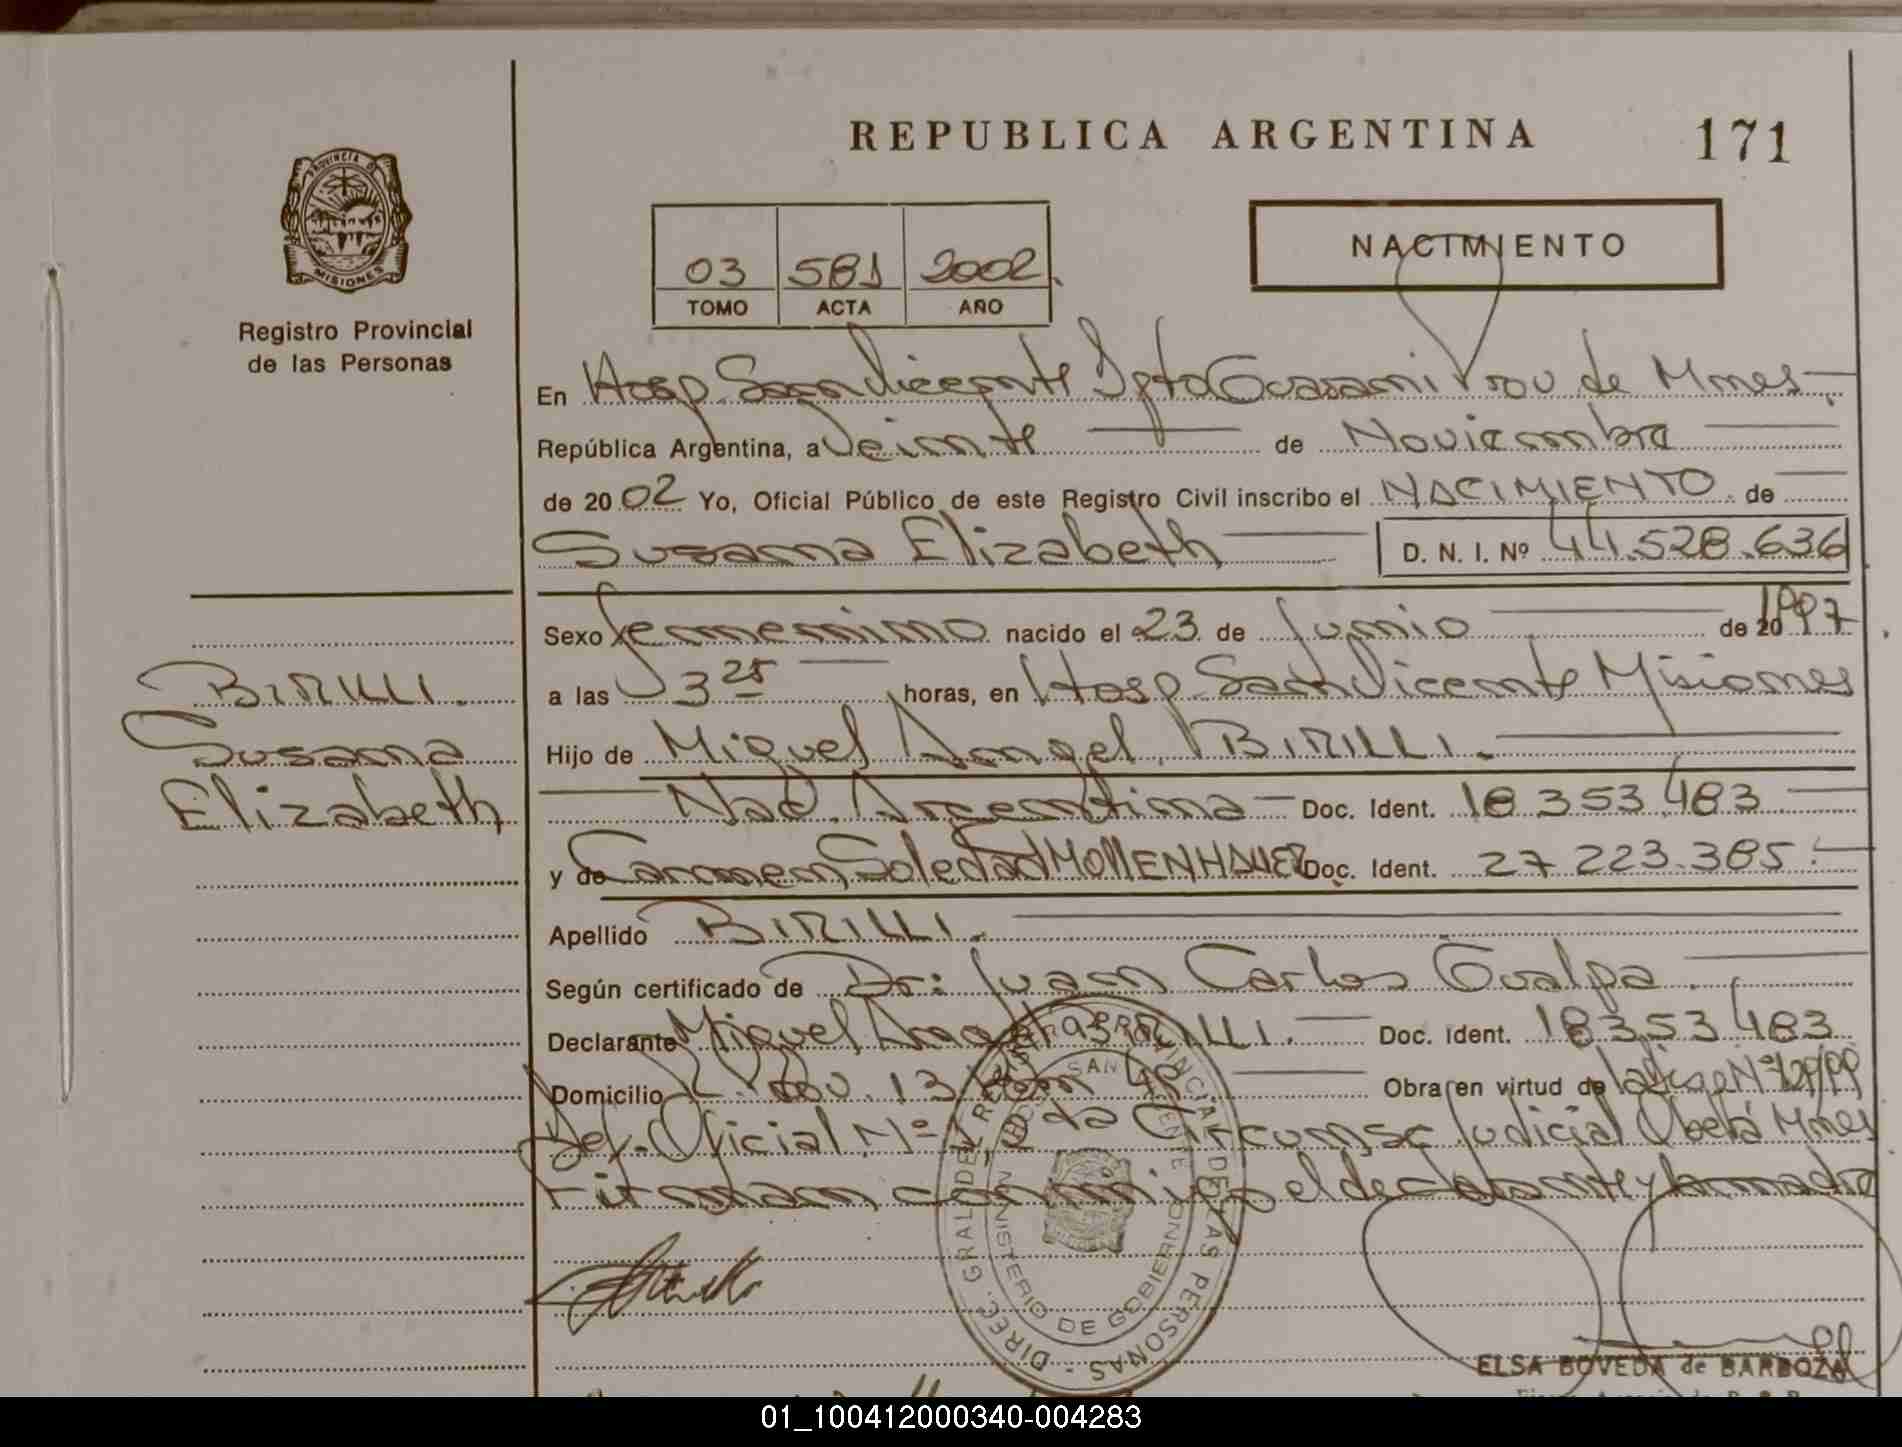 REPUBLICA ARGENTINA 171
PROVINCIA DE
MISIONES
Registro Provincial
de las Personas
NACIMIENTO
03 581 2002
TOMO ACTA AÑO
En Hosp San Vicente Dpto Guarani Prov de Mnes
República Argentina, a Veinte de Noviembre
de 20 02 Yo, Oficial Público de este Registro Civil inscribo el NACIMIENTO de
Susana Elizabeth D. N. I. Nº 44.528.636
Sexo femenino nacido el 23 de Junio de 20 1997
a las 3 25 horas, en Hosp San Vicente Misiones
Hijo de Miguel Angel BIRILLI.
Nac. Argentina Doc. Ident. 18.353.483
y de Carmen Soledad MOLLENHAUER Doc. Ident. 27.223.385
Apellido BIRILLI.
Según certificado de Dr: Juan Carlos Gualpa
Declarante Miguel Angel BIRILLI. Doc. Ident. 18353483
Domicilio 13 Km Obra en virtud de
Def. Oficial Nº 1 da Circunsc Judicial Oberá Mnes
Firman conmigo el declarante y la madre
BIRILLI.
Susana
Elizabeth
DIREC. GRAL. DEL REGISTRO PROVINCIAL DE LAS PERSONAS
MINISTERIO DE GOBIERNO
SAN VICENTE
ELSA BOVEDA de BARBOZA
01_100412000340-004283